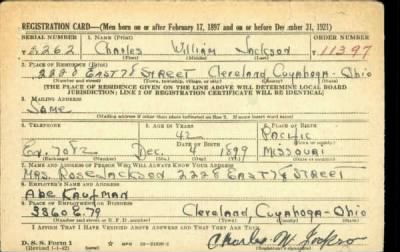 REGISTRATION CARD—(Men born on or after February 17, 1897 and on or before December 31, 1921)
SERIAL NUMBER 1. NAME (Print) ORDER NUMBER
T 5262 Charles William Jackson 11397
(First) (Middle) (Last)
2. PLACE OF RESIDENCE (Print)
2228 EAST 78 STREET Cleveland Cuyahoga - Ohio
(Number and street) (Town, township, village, or city) (County) (State)
[THE PLACE OF RESIDENCE GIVEN ON THE LINE ABOVE WILL DETERMINE LOCAL BOARD
JURISDICTION; LINE 2 OF REGISTRATION CERTIFICATE WILL BE IDENTICAL]
3. MAILING ADDRESS
Same
[Mailing address if other than place indicated on line 2. If same insert word same]
4. TELEPHONE 5. AGE IN YEARS 6. PLACE OF BIRTH
42 Pacific
DATE OF BIRTH (Town or county)
Ex. 7082 Dec. 4 1899 MISSOURI
7. NAME AND ADDRESS OF PERSON WHO WILL ALWAYS KNOW YOUR ADDRESS
MRS. ROSE JACKSON 2228 EAST 78 STREET
8. EMPLOYER'S NAME AND ADDRESS
Abe Kaufman
9. PLACE OF EMPLOYMENT OR BUSINESS
3860 E. 79 Cleveland, Cuyahoga - Ohio
(Number and street or R. F. D. number) (Town) (County) (State)
I AFFIRM THAT I HAVE VERIFIED ABOVE ANSWERS AND THAT THEY ARE TRUE.
D. S. S. Form 1
Charles W. Jackson